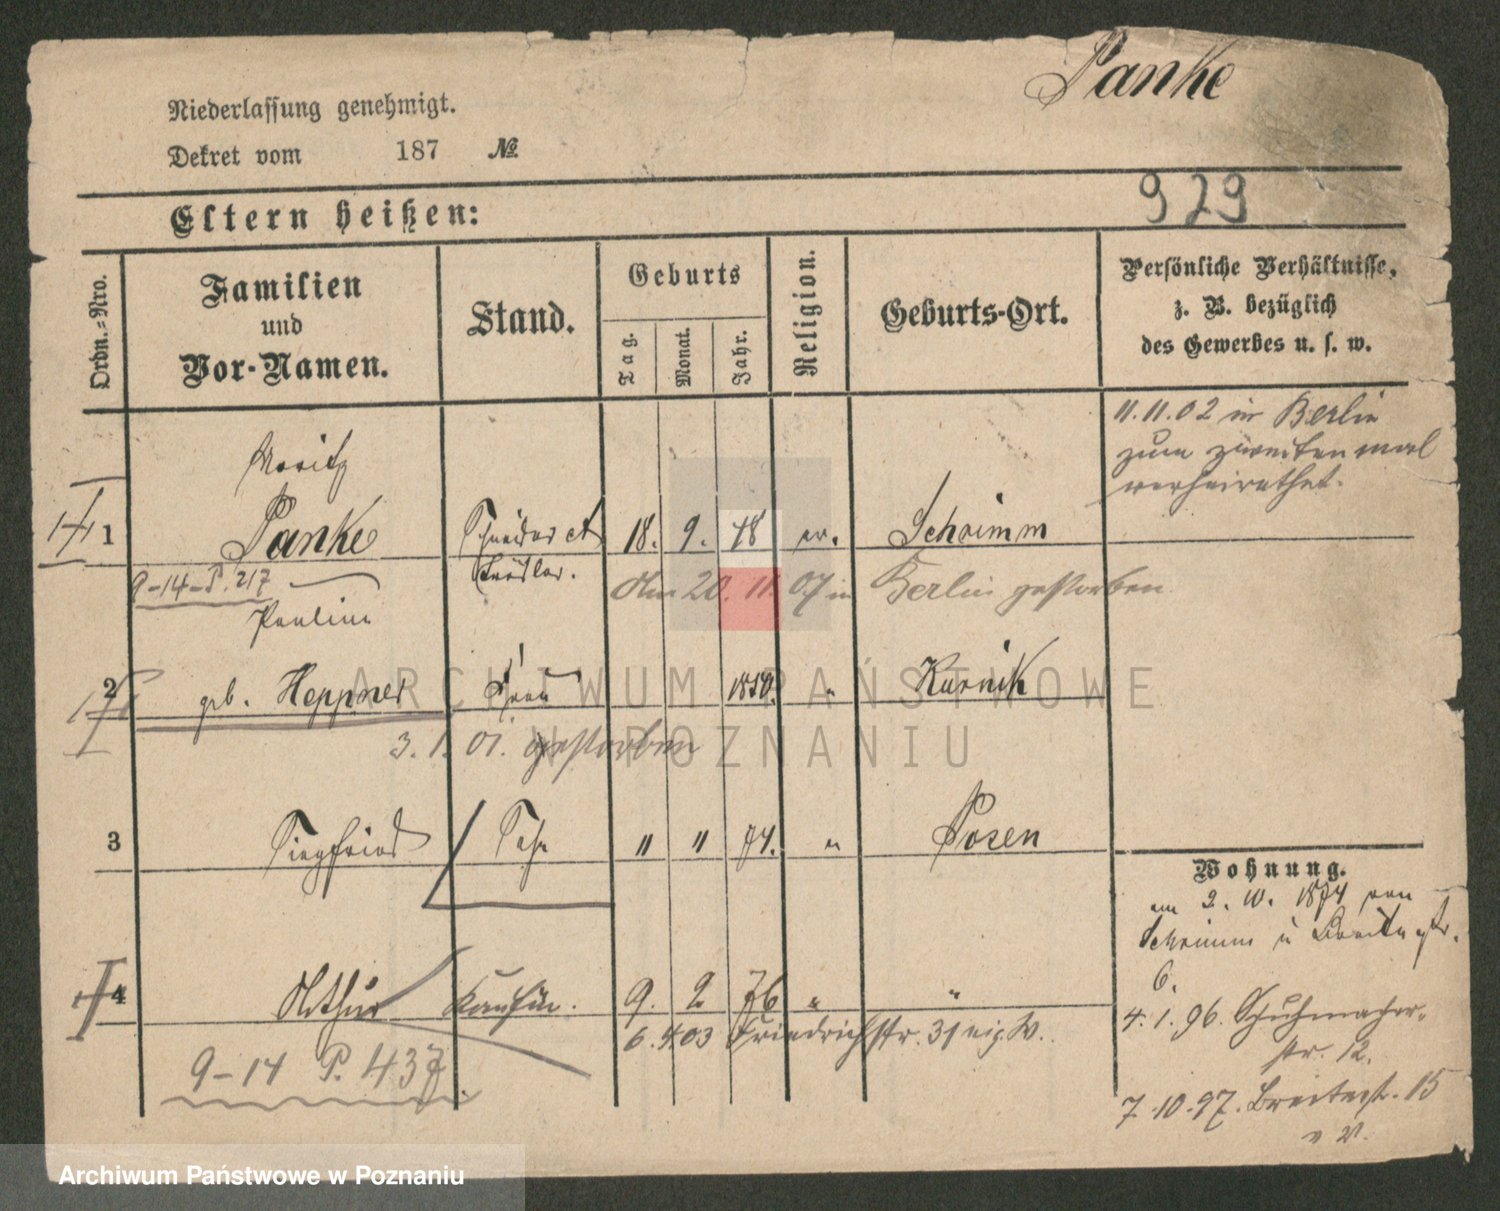 Panke
Niederlassung genehmigt.
Dekret vom 187 №
929
Eltern heißen:
Ordn.=Nro.
Familien
und
Vor-Namen.
Stand.
Geburts
Tag.
Monat.
Jahr.
Religion.
Geburts-Ort.
Persönliche Verhältnisse,
z. B. bezüglich
des Gewerbes u. s. w.
11.11.02 in Berlin
zum zweiten mal
verheirathet.
Moritz
1 Panke Schneider et 18. 9. 48 Schrimm
9-14-P. 217 Händler.
Am 20. 11. 07 in Berlin gestorben
Pauline
2 geb. Heppner Frau 1850. " Kurnik
3. 1. 01. gestorben
3 Siegfried Sohn " " 74. " Posen
Wohnung.
am 2. 10. 1874 von
Schrimm Breitestr.
6.
4 Arthur Kaufm. 9. 2 76 " "
6.4.03 Friedrichstr. 31 eig. W.
4. 1. 96. Schuhmacher-
str. 12.
9-14 P. 437
7.10.97. Breitestr. 15
ARCHIWUM PAŃSTWOWE
W POZNANIU
Archiwum Państwowe w Poznaniu